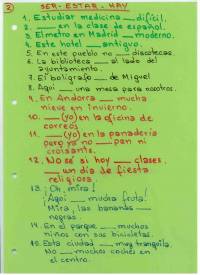 2 SER - ESTAR - HAY
1. Estudiar medicina ___ difícil.
2. ___ en la clase de español.
3. El metro en Madrid ___ moderno.
4. Este hotel ___ antiguo.
5. En este pueblo no ___ discotecas.
6. La biblioteca ___ al lado del
ayuntamiento.
7. El bolígrafo ___ de Miguel
8. Aquí ___ una mesa para nosotros.
9. En Andorra ___ mucha
nieve en invierno.
10. ___ (yo) en la oficina de
correos
11. ___ (yo) en la panadería
pero ya no ___ pan ni
croissants.
12. No sé si hoy ___ clases,
___ un día de fiesta
religiosa.
13. ¡Oh, mira!
¡Aquí ___ mucha fruta!
Mira, las bananas ___
negras.
14. En el parque ___ muchos
niños con sus bicicletas.
15. Esta ciudad ___ muy tranquila.
No ___ muchos coches en
el centro.